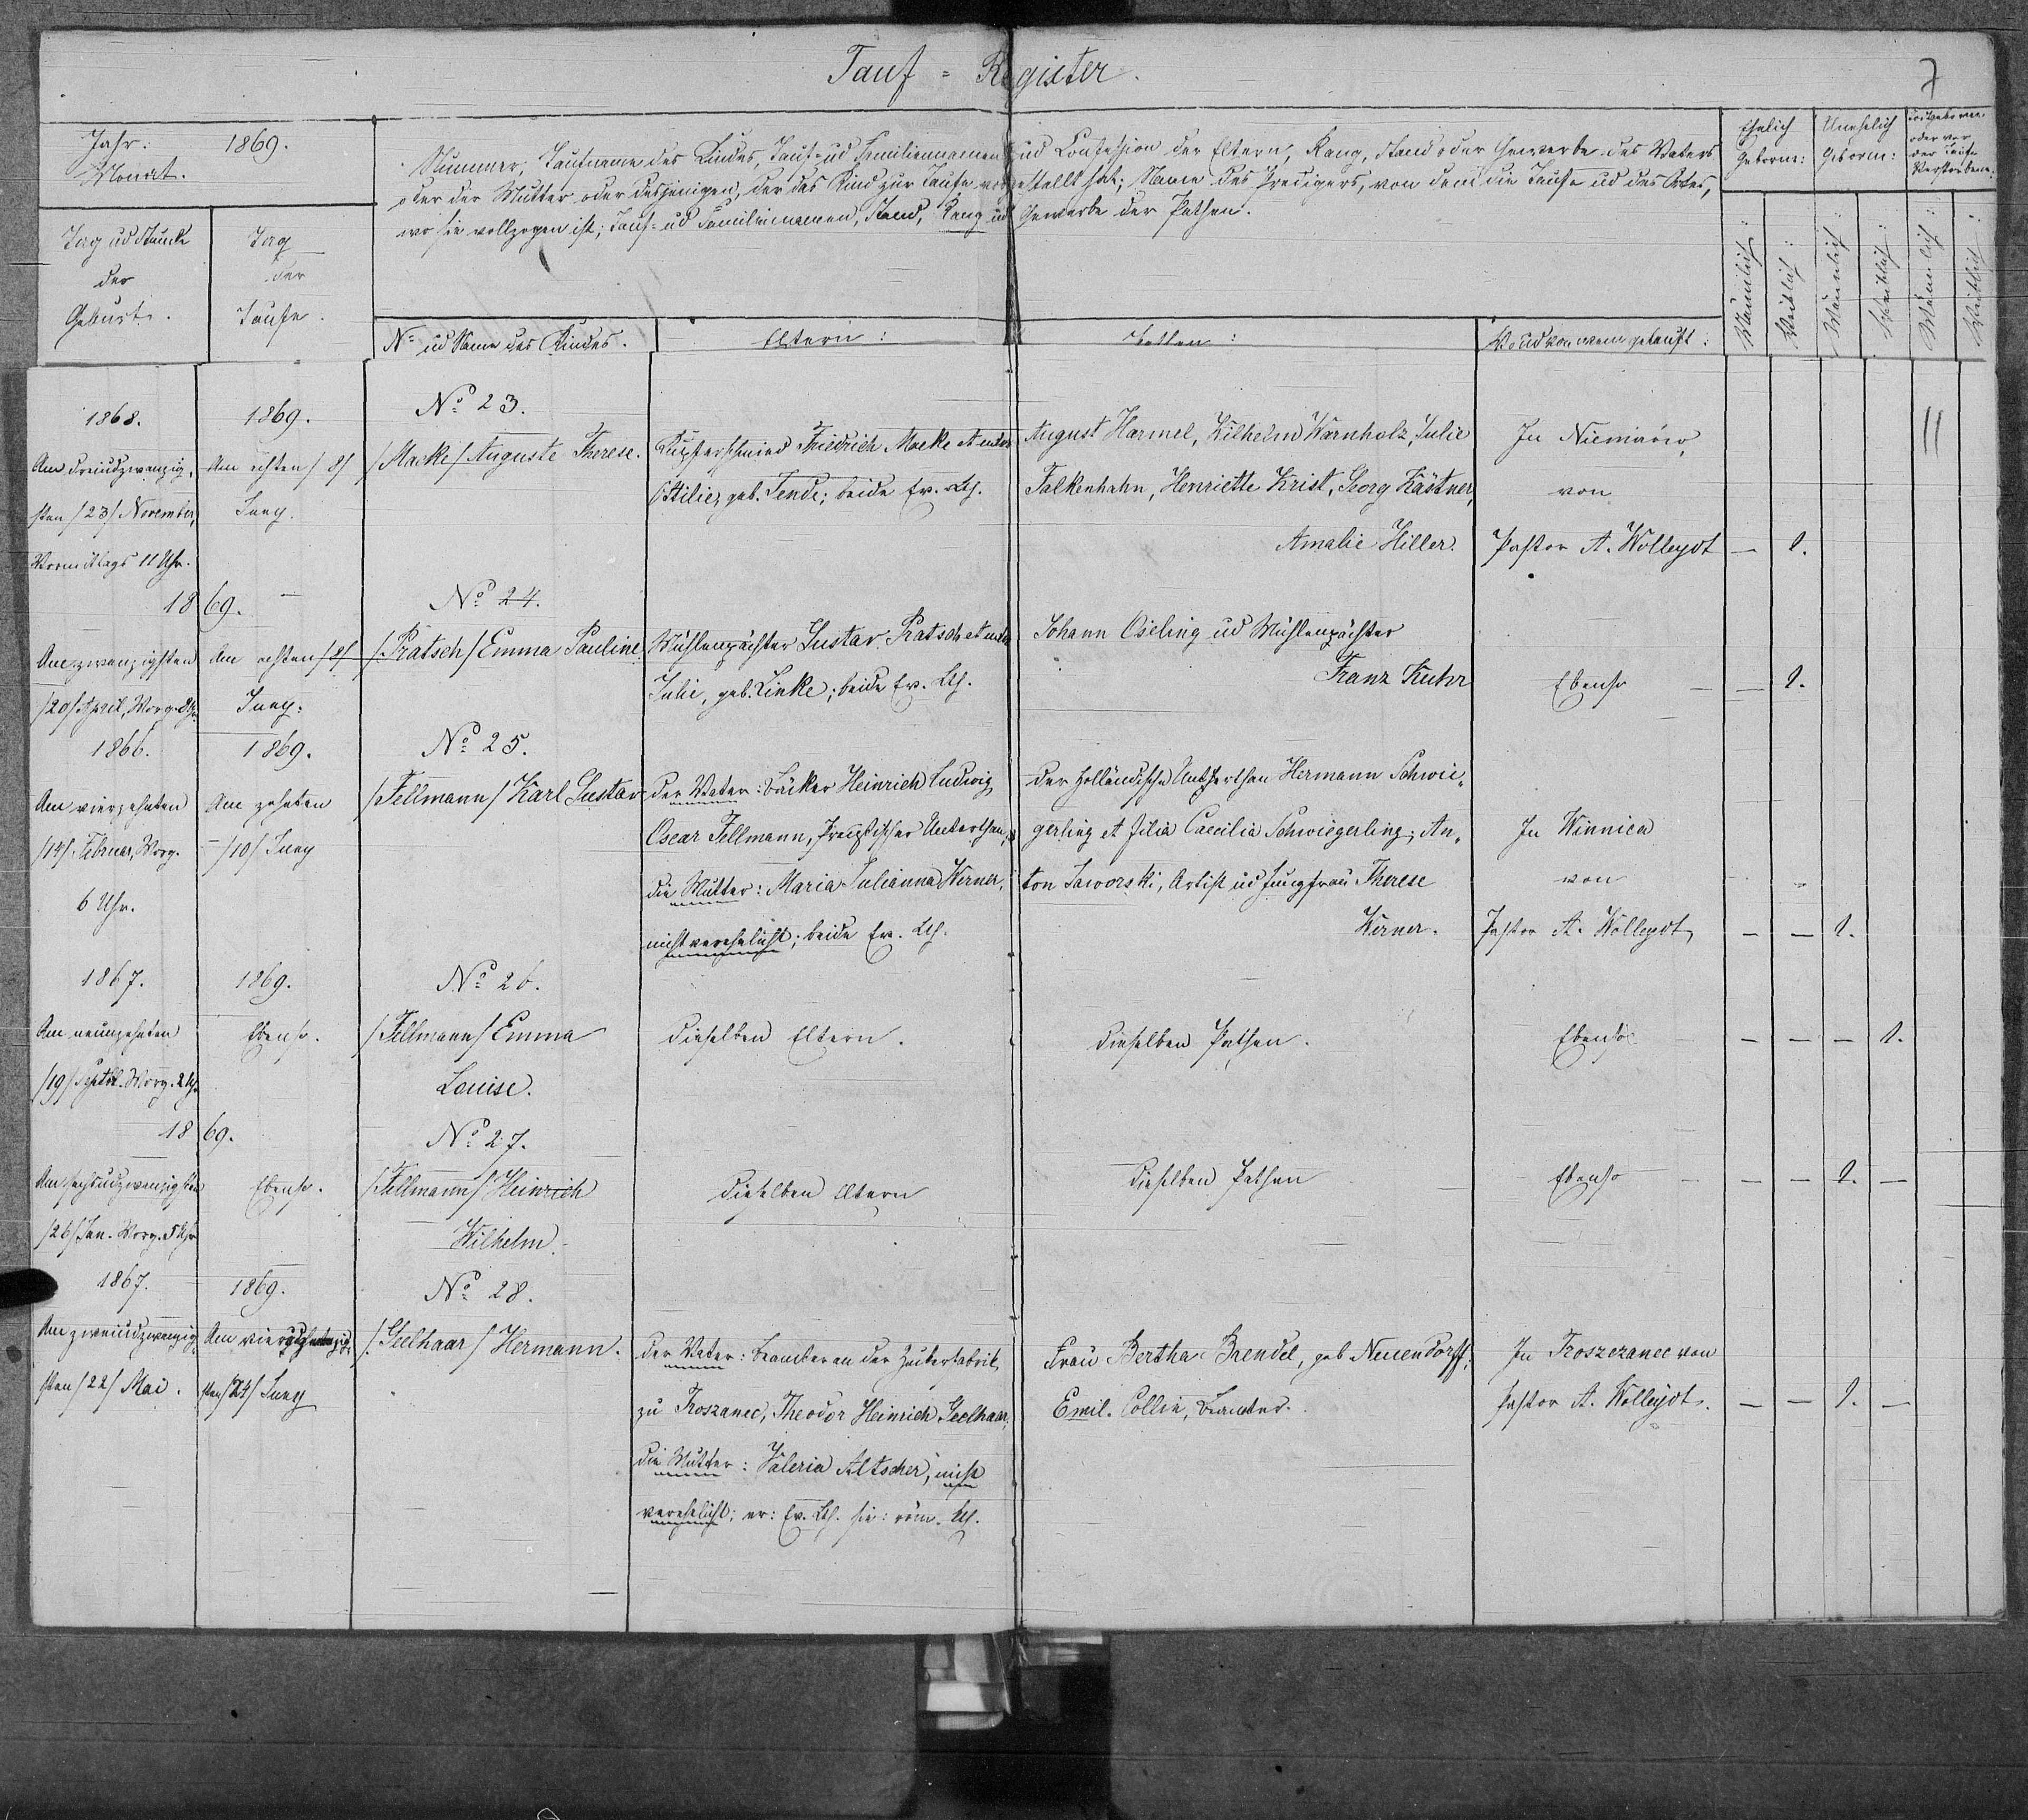 Tauf = Register.
7
Jahr: 1869.
Monat.
Tag ud Stunde der Geburt.
Tag der Taufe.
Nummer, Taufname des Kindes, Tauf- ud Familiennamen ud Confession der Eltern, Rang, Stand oder Gewerbe des Vaters
oder der Mutter oder desjenigen, der das Kind zur Taufe vorgestellt hat; Name des Predigers, von dem die Taufe ud des Ortes,
wo sie vollzogen ist; Tauf- ud Familiennamen, Stand, Rang ud Gewerbe der Pathen.
No ud Name des Kindes.
Eltern:
Pathen:
Wo ud von wem getauft:
Ehelich Geborne:
Unehelich Geborne:
Todtgeborene oder vor der Taufe Verstorbene:
Männlich:
Weiblich:
Männlich:
Weiblich:
Männlich:
Weiblich:
1868.
Am dreiudzwanzig-
sten /23/ November,
Vormittags 11 Uhr.
1869.
Am achten /8/
Juny.
No 23.
/Macke/ Auguste Therese.
Kupferschmied Friedrich Macke et uxor
Ottilie, geb. Tende; beide Ev. Lth.
August Harmel, Wilhelm Warnholz, Julie
Falkenhahn, Henriette Krist, Georg Kästner,
Amalie Hiller.
In Niemirów,
von
Pastor A. Wolleydt
— 1.
11
1869.
Am zwanzigsten
/20/ April, Morg. 8 Uhr
Am achten /8/
Juny.
No 24.
/Pratsch/ Emma Pauline
Mühlenpächter Gustav Pratsch et uxor
Julie, geb. Linke; beide Ev. Lth.
Johann Oseling ud Mühlenpächter
Franz Kuhr
Ebenso
— 1.
1866.
Am vierzehnten
/14/ Februar, Morg.
6 Uhr.
1869.
Am zehnten
/10/ Juny
No 25.
/Fellmann/ Karl Gustav
der Vater: Bäcker Heinrich Ludwig
Oscar Fellmann, Preußischer Unterthan,
die Mutter: Maria Julianna Werner,
nicht verehelicht; beide Ev. Lth.
Der Holländische Unterthan Hermann Schwie-
gerling et filia Caecilia Schwiegerling; An-
ton Jaworski, Artist ud Jungfrau Therese
Werner.
In Winnica
von
Pastor A. Wolleydt
— — 1.
1867.
Am neunzehnten
/19/ Septbr. Morg. 2 Uhr
1869.
Ebenso.
No 26.
/Fellmann/ Emma
Louise.
Dieselben Eltern.
Dieselben Pathen.
Ebenso
— — — 1.
1869.
Am sechsudzwanzigsten
/26/ Jan. Morg. 5 Uhr
Ebenso.
No 27.
/Fellmann/ Heinrich
Wilhelm.
Dieselben Eltern
Dieselben Pathen
Ebenso
— — 1. —
1867.
Am zweiudzwanzig-
sten /22/ Mai.
1869.
Am vierudzwanzig-
sten /24/ Juny
No 28.
/Seelhaar/ Hermann.
der Vater: Beamter an der Zuckerfabrik
zu Troszanec, Theodor Heinrich Seelhaar,
die Mutter: Valeria Altscher, nicht
verehelicht; er: Ev. Lth. sie: röm. kth.
Frau Bertha Brendel, geb Neuendorff;
Emil Collin, Beamter.
In Troszczanec von
Pastor A. Wolleydt.
— — 1. —